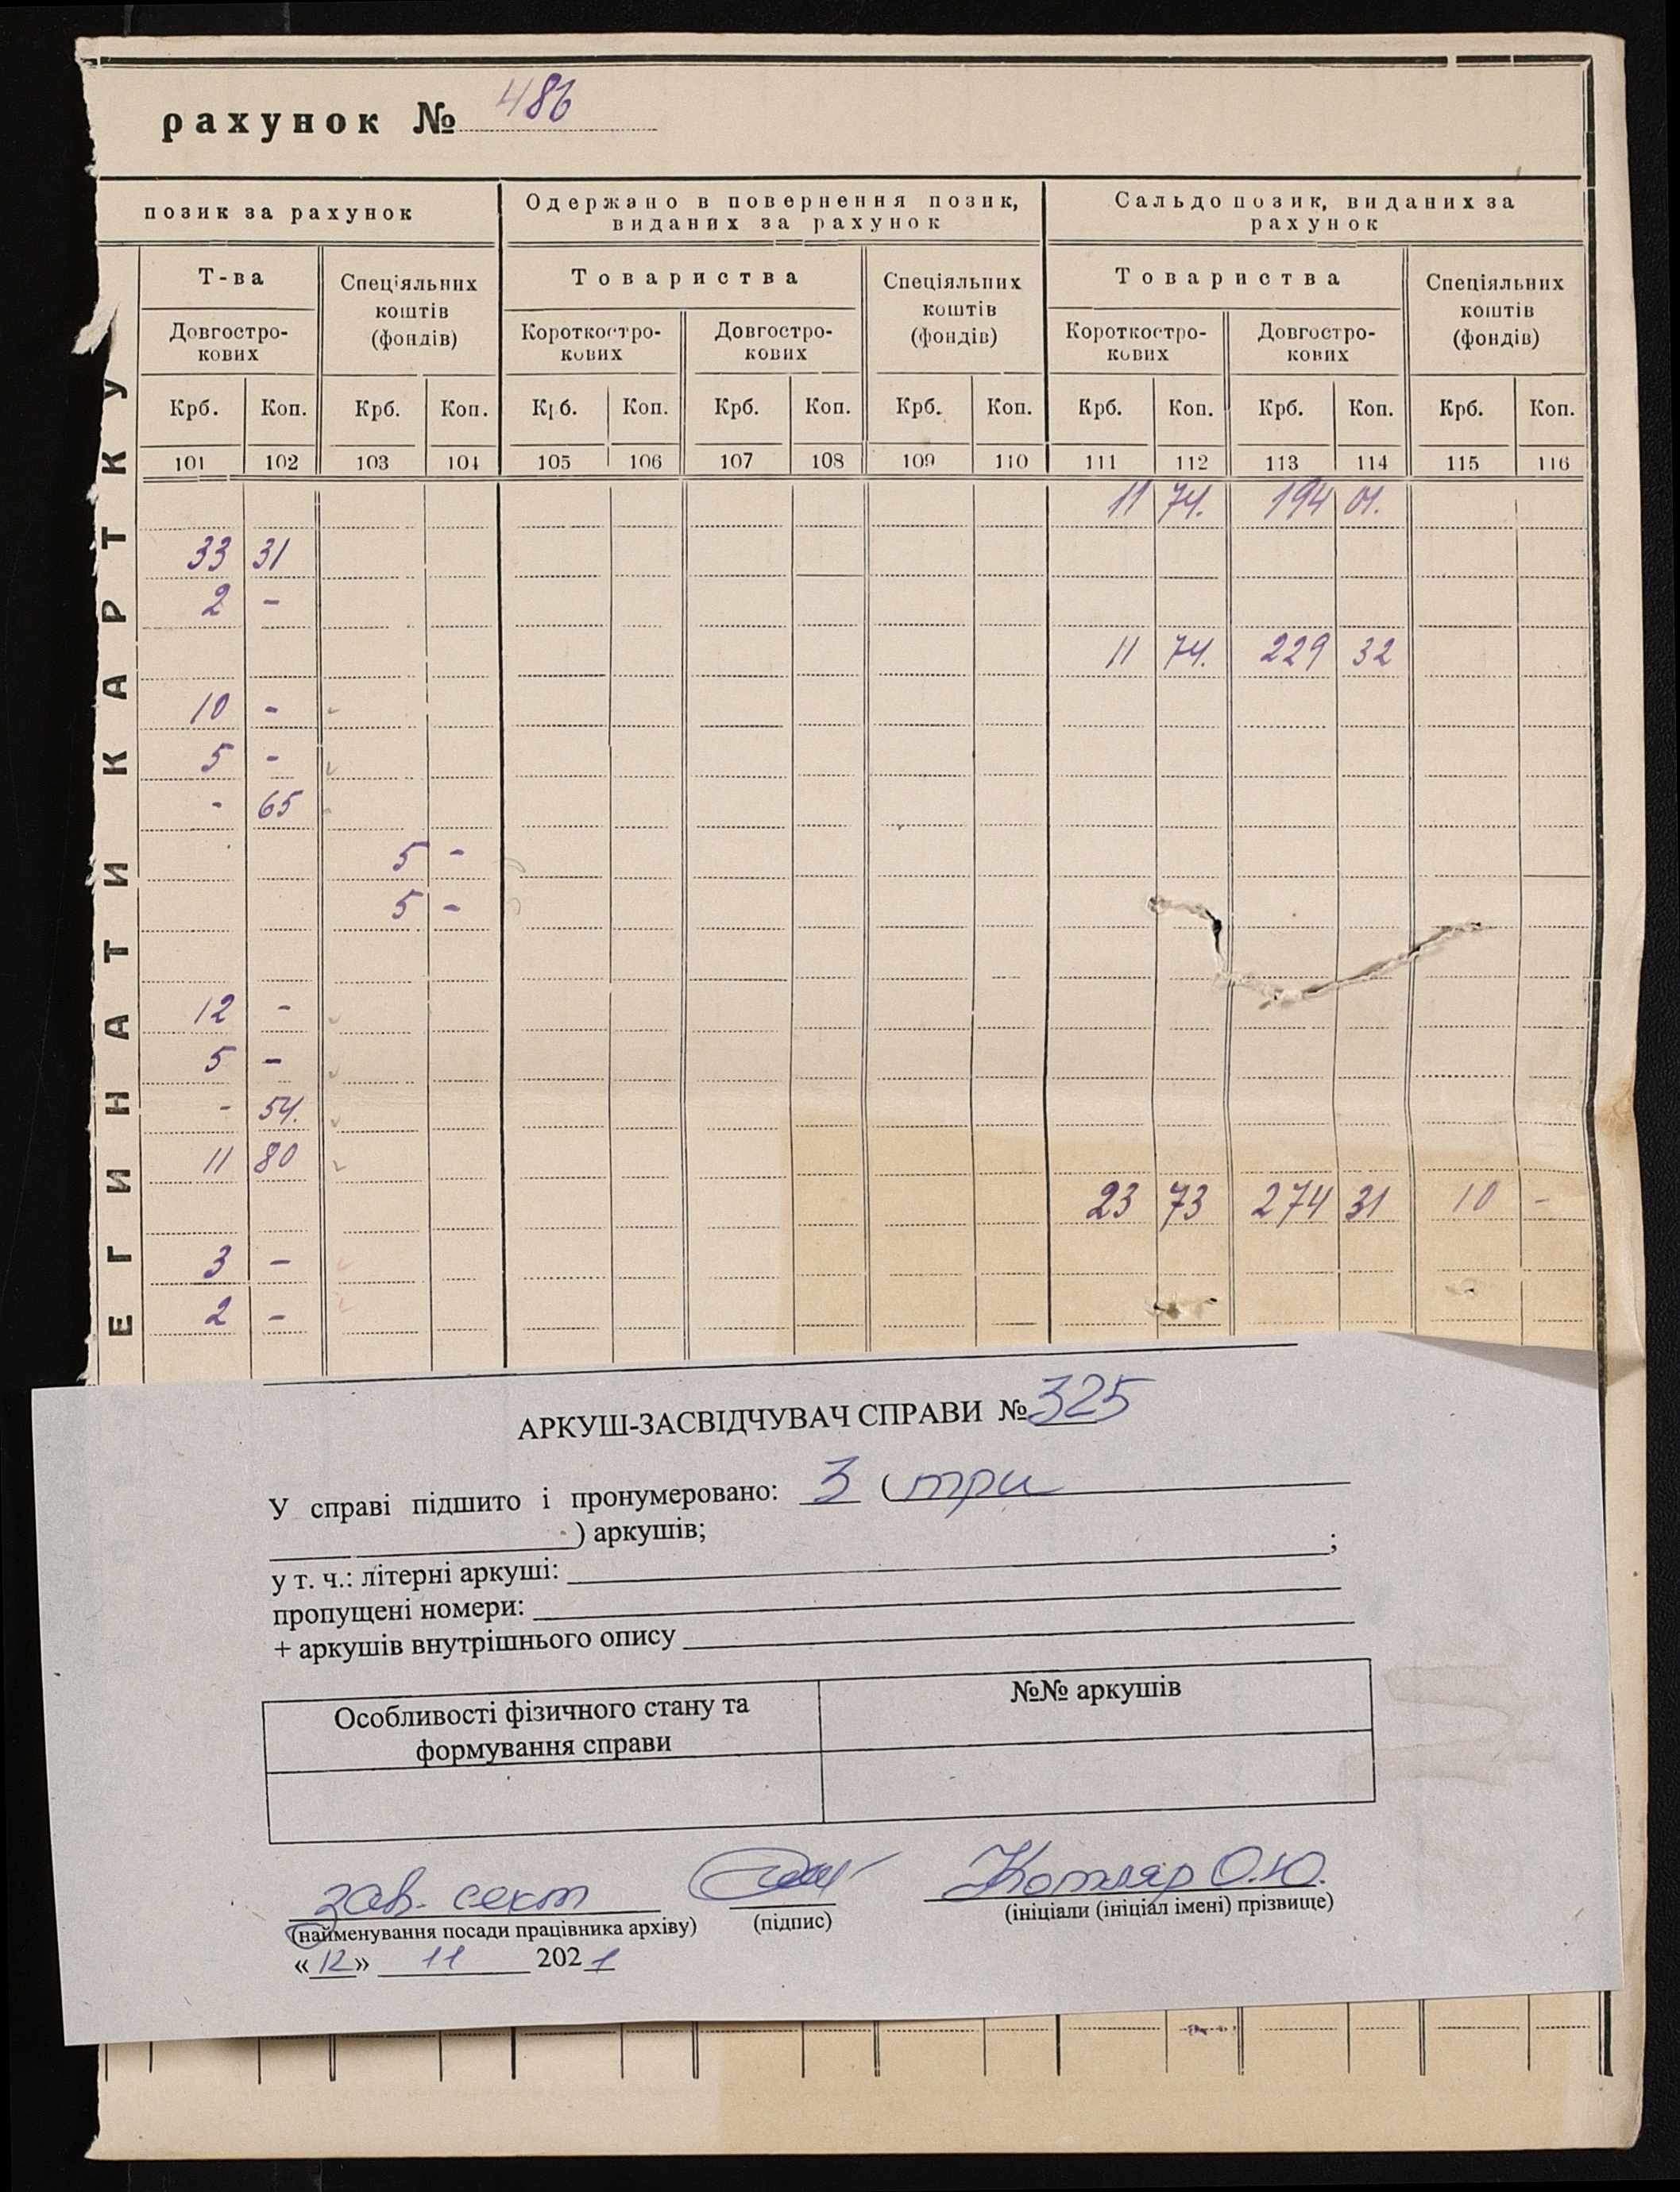 рахунок № 486
позик за рахунок
Одержано в повернення позик, виданих за рахунок
Сальдо позик, виданих за рахунок
Т-ва
Спеціяльних коштів (фондів)
Товариства
Спеціяльних коштів (фондів)
Товариства
Спеціяльних коштів (фондів)
Довгостро-кових
Короткостро-кових
Довгостро-кових
Короткостро-кових
Довгостро-кових
Крб. Коп. Крб. Коп. Крб. Коп. Крб. Коп. Крб. Коп. Крб. Коп. Крб. Коп. Крб. Коп.
101 102 103 104 105 106 107 108 109 110 111 112 113 114 115 116
11 74. 194 01.
33 31
2 -
11 74. 229 32
10 -
5 -
- 65
5 -
5 -
12 -
5 -
- 54.
11 80
23 73 274 31 10 -
3 -
2 -
ЕГИНАТИ КАРТКУ
АРКУШ-ЗАСВІДЧУВАЧ СПРАВИ № 325
У справі підшито і пронумеровано: 3 (три
) аркушів;
у т. ч.: літерні аркуші: ;
пропущені номери:
+ аркушів внутрішнього опису
Особливості фізичного стану та формування справи
№№ аркушів
зав. сект Котляр О.Ю.
(найменування посади працівника архіву) (підпис) (ініціали (ініціал імені) прізвище)
«12» 11 2021